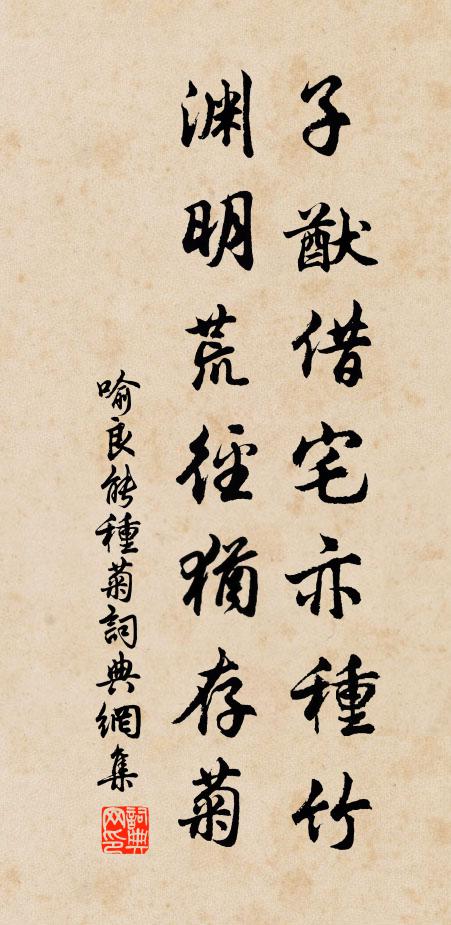 子猷借宅亦種竹
淵明荒徑猶存菊
喻良能種菊詞典網集
詞典网印